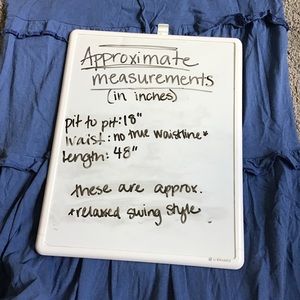 Approximate
measurements
(in inches)
pit to pit: 18"
Waist: no true waistline*
Length: 48"
these are approx.
*relaxed swing style